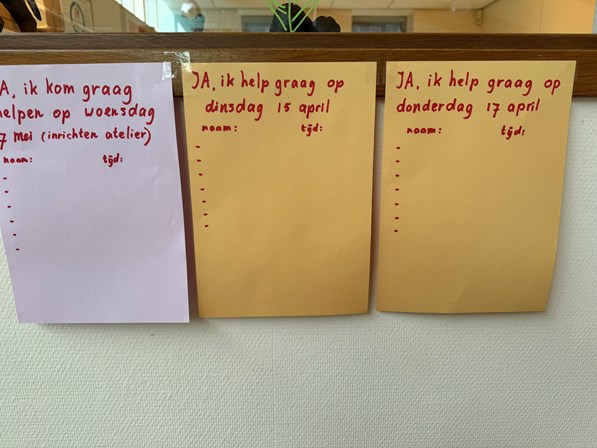 A, ik kom graag
helpen op woensdag
7 Mei (inrichten atelier)
naam: tijd:
-
-
-
-
-
-
JA, ik help graag op
dinsdag 15 april
naam: tijd:
-
-
-
-
-
-
-
JA, ik help graag op
donderdag 17 april
naam: tijd:
-
-
-
-
-
-
-